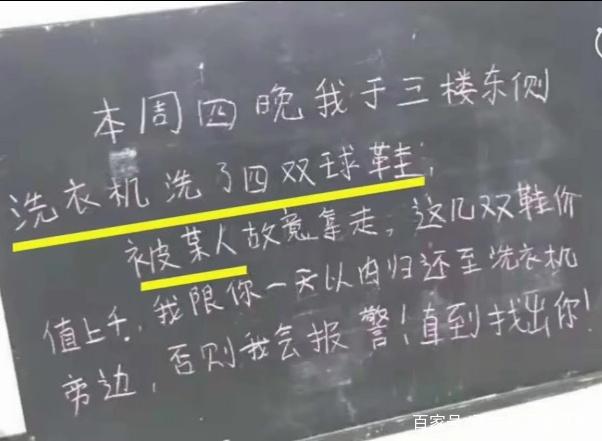 本周四晚我于三楼东侧
洗衣机洗了四双球鞋,
被某人故意拿走，这几双鞋价
值上千，我限你一天以内归还至洗衣机
旁边，否则我会报警！直到找出你！
百家号